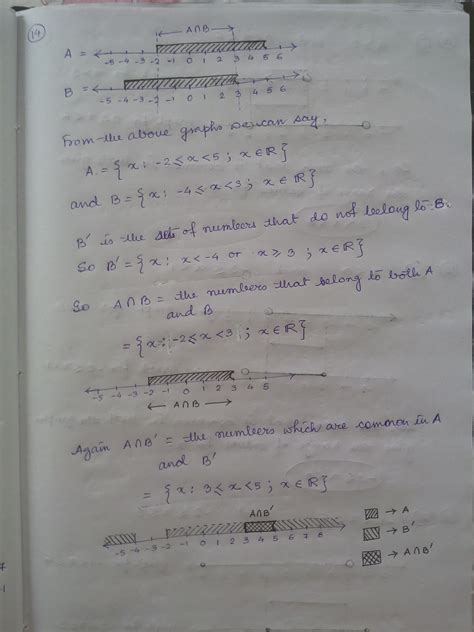 14
A∩B
A =
-5 -4 -3 -2 -1 0 1 2 3 4 5 6
B =
-5 -4 -3 -2 -1 0 1 2 3 4 5 6
From the above graphs we can say,
A = { x : -2 ≤ x < 5 ; x ∈ ℝ }
and B = { x : -4 ≤ x < 3 ; x ∈ ℝ }
B' is the sets of numbers that do not beelong to B.
So B' = { x : x < -4 or x ≥ 3 ; x ∈ ℝ }
So A∩B = the numbers that belong to both A
and B
= { x : -2 ≤ x < 3 ; x ∈ ℝ }
-5 -4 -3 -2 -1 0 1 2 3 4 5
A∩B
Again A∩B' = the numbers which are common in A
and B'
= { x : 3 ≤ x < 5 ; x ∈ ℝ }
A∩B'
-5 -4 -3 -2 -1 0 1 2 3 4 5 6 7 8
→ A
→ B'
→ A∩B'